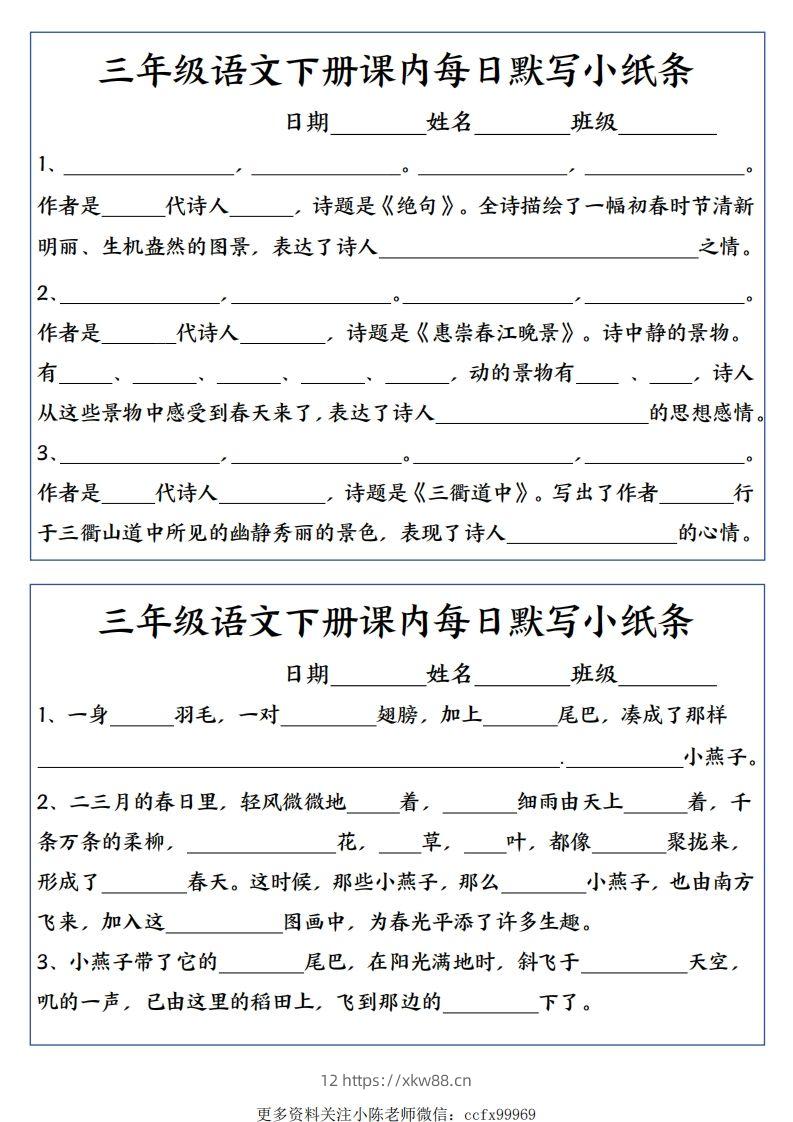 三年级语文下册课内每日默写小纸条
日期________姓名________班级________
1、________________，______________。______________，_______________。
作者是______代诗人______，诗题是《绝句》。全诗描绘了一幅初春时节清新
明丽、生机盎然的图景，表达了诗人______________________________之情。
2、_______________，_______________。________________，_______________。
作者是_______代诗人________，诗题是《惠崇春江晚景》。诗中静的景物。
有_____、______、______、______、______，动的景物有____ 、____，诗人
从这些景物中感受到春天来了，表达了诗人____________________的思想感情。
3、_______________，________________。_______________，_______________。
作者是_____代诗人__________，诗题是《三衢道中》。写出了作者_______行
于三衢山道中所见的幽静秀丽的景色，表现了诗人________________的心情。
三年级语文下册课内每日默写小纸条
日期________姓名________班级________
1、一身______羽毛，一对_________翅膀，加上_______尾巴，凑成了那样
_________________________________________________.___________小燕子。
2、二三月的春日里，轻风微微地_____着，_______细雨由天上______着，千
条万条的柔柳，______________花，____草，____叶，都像_______聚拢来，
形成了________春天。这时候，那些小燕子，那么________小燕子，也由南方
飞来，加入这___________图画中，为春光平添了许多生趣。
3、小燕子带了它的________尾巴，在阳光满地时，斜飞于__________天空，
叽的一声，已由这里的稻田上，飞到那边的_________下了。
12 https://xkw88.cn
更多资料关注小陈老师微信：ccfx99969